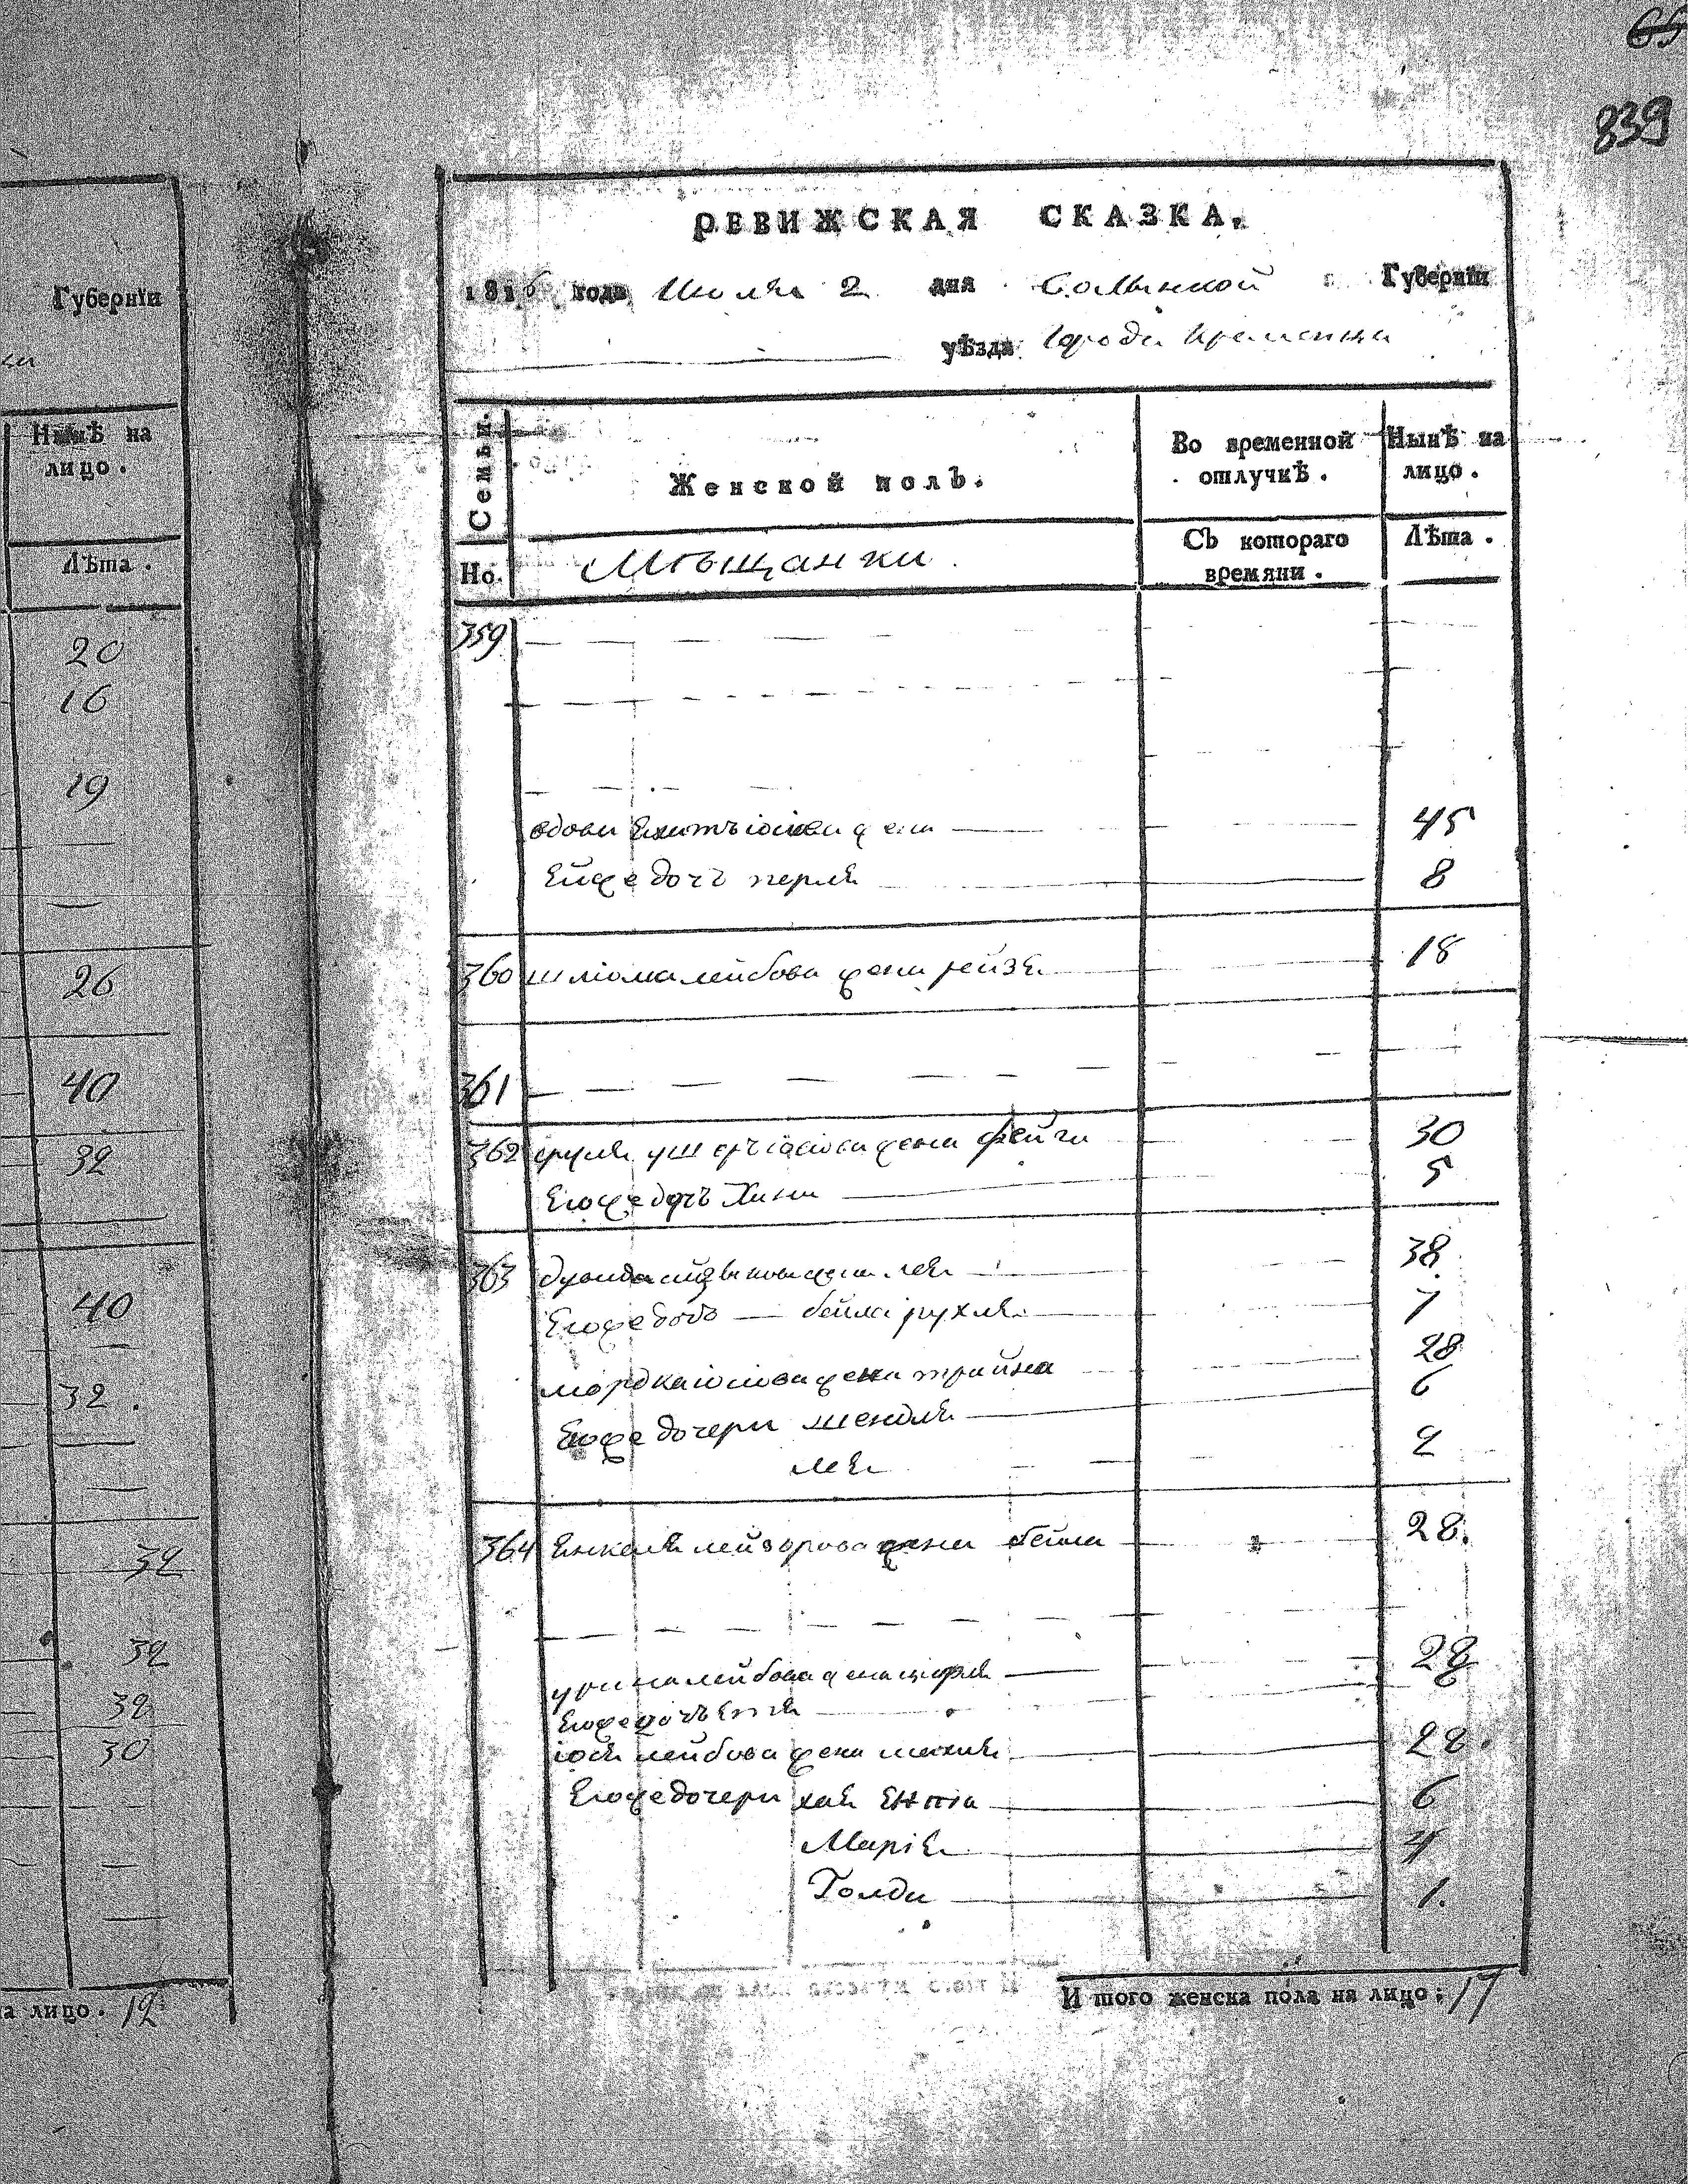 Губерніи
Нынѣ на
лицо.
Лѣта.
20
16
19
26
40
32
40
32.
32
32
32
30
на лицо. 12
65
839
РЕВИЖСКАЯ СКАЗКА.
1816 года Июля 2 дня Волынской Губерніи
уѣзда Города Кременца
Семьи.
Женской полъ.
Во временной
отлучкѣ.
Нынѣ на
лицо.
Но.
Мѣщанки
Съ котораго
времяни.
Лѣта.
359
вдова жена 45
Ей же дочь перля 8
360 шліома лейбова жена рейзя 18
361
362 сруля жена фейга 30
Его же дочь Хана 5
363 жена лея 38
Его же дочь бейла рухля 7
мордка іосіова жена трайна 28
Его же дочери шендля 6
лея 2
364 Янкеля лейзорова жена бейла 28.
лейбова жена 28
Его же дочь
іося лейбова жена 28.
Его же дочери хая ента 6
Марія 4
Голда 1.
И того женска пола на лицо: 17